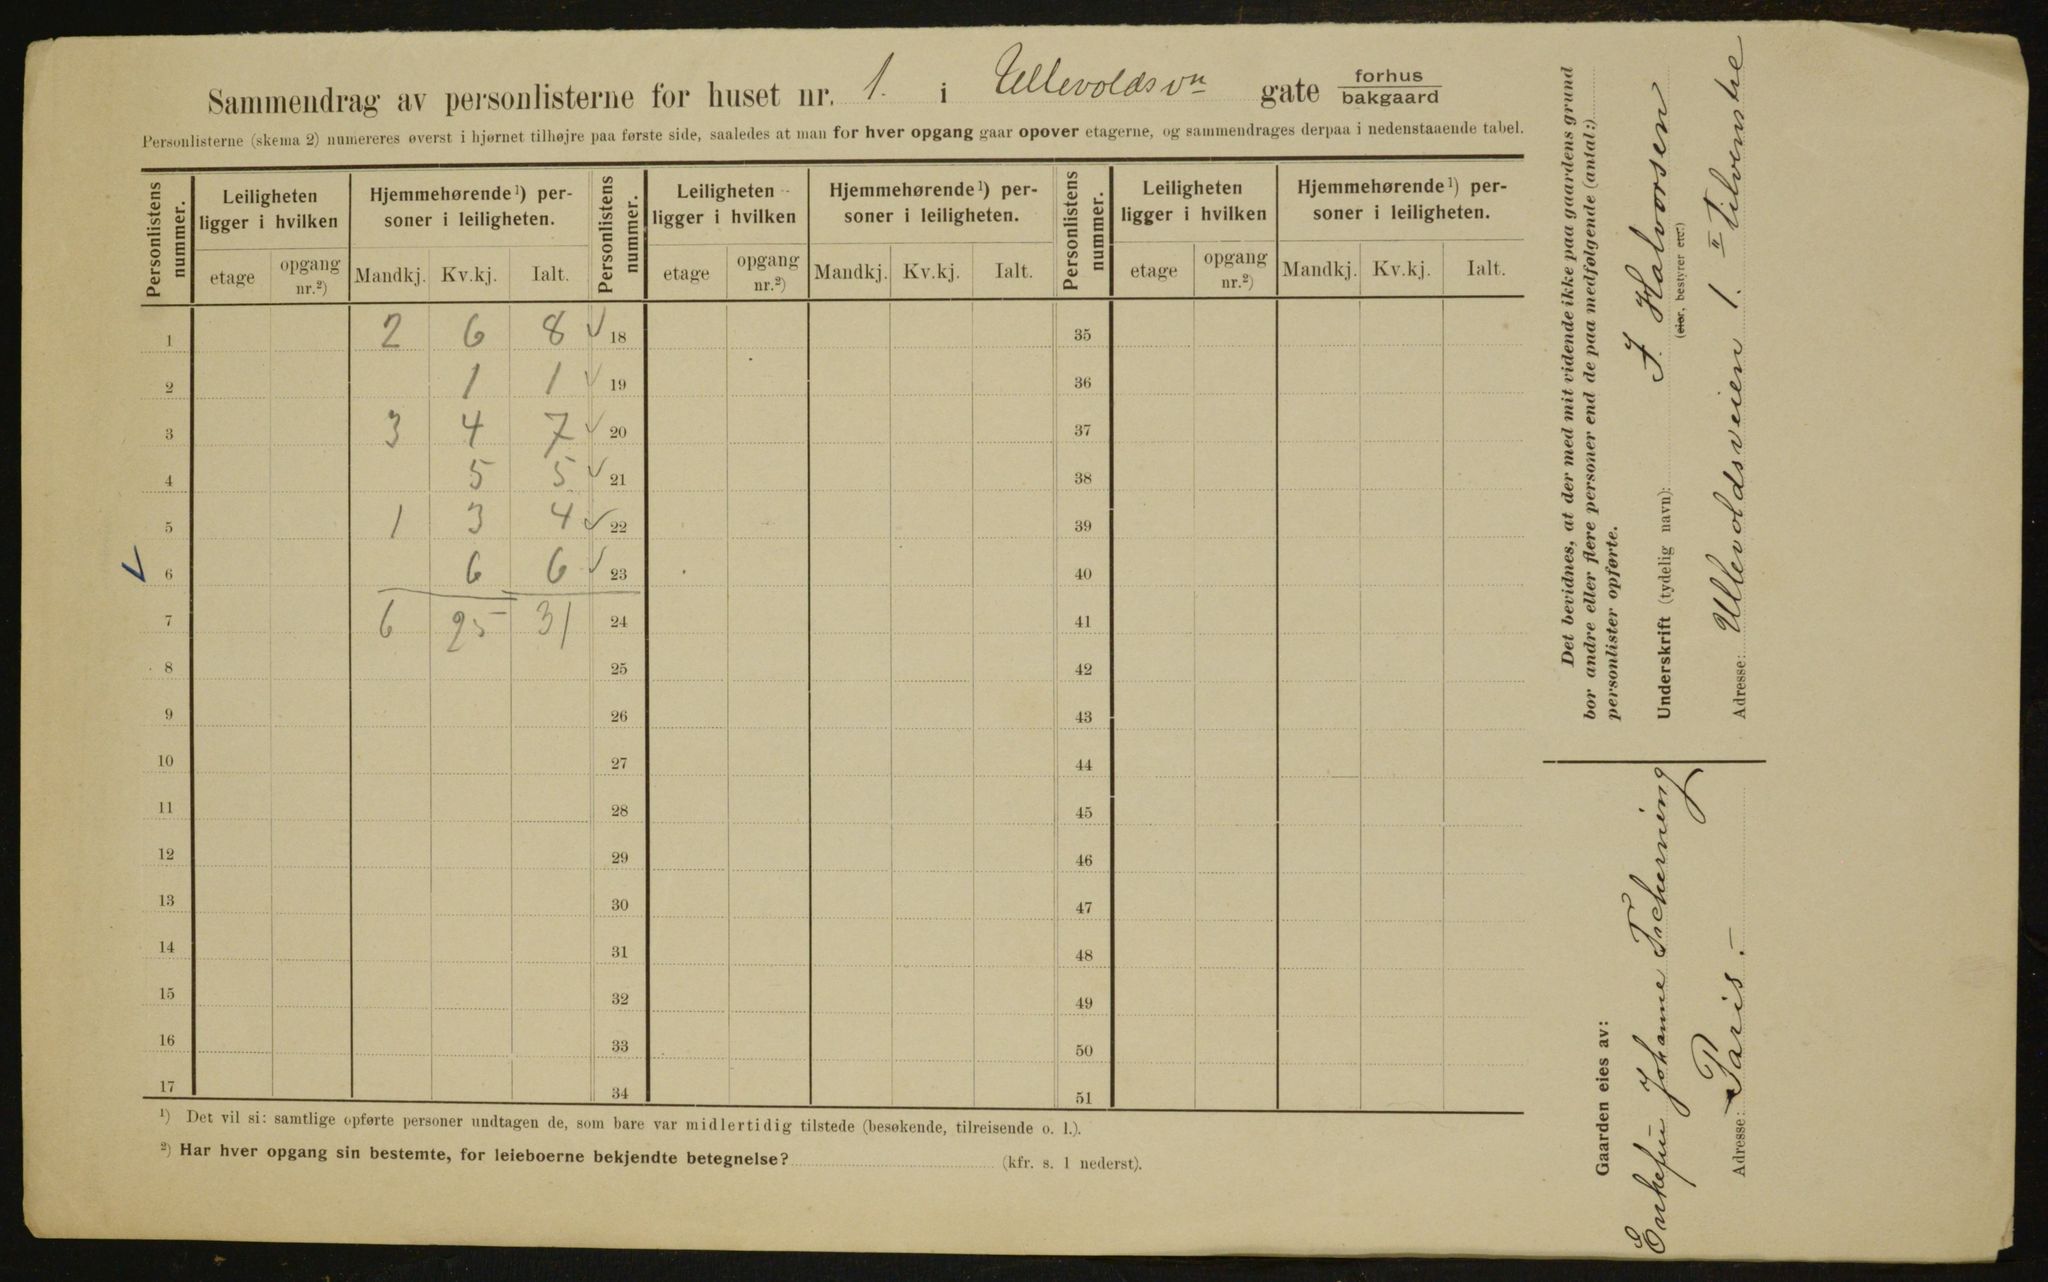 Sammendrag av personlisterne for huset nr. 1. i Ullevoldsvn gate forhus
bakgaard
Personlisterne (skema 2) numereres øverst i hjørnet tilhøjre paa første side, saaledes at man for hver opgang gaar opover etagerne, og sammendrages derpaa i nedenstaaende tabel.
Personlistens nummer. Leiligheten ligger i hvilken Hjemmehørende ¹) personer i leiligheten. Personlistens nummer. Leiligheten ligger i hvilken Hjemmehørende ¹) personer i leiligheten. Personlistens nummer. Leiligheten ligger i hvilken Hjemmehørende ¹) personer i leiligheten.
etage opgang nr.²) Mandkj. Kv.kj. Ialt. etage opgang nr.²) Mandkj. Kv.kj. Ialt. etage opgang nr.²) Mandkj. Kv.kj. Ialt.
1 2 6 8 ✓ 18 35
2 1 1 ✓ 19 36
3 3 4 7 ✓ 20 37
4 5 5 ✓ 21 38
5 1 3 4 ✓ 22 39
✓ 6 6 6 ✓ 23 40
7 6 25 31 24 41
8 25 42
9 26 43
10 27 44
11 28 45
12 29 46
13 30 47
14 31 48
15 32 49
16 33 50
17 34 51
¹) Det vil si: samtlige opførte personer undtagen de, som bare var midlertidig tilstede (besøkende, tilreisende o. l.).
²) Har hver opgang sin bestemte, for leieboerne bekjendte betegnelse? (kfr. s. 1 nederst).
Det bevidnes, at der med mit vidende ikke paa gaardens grund
bor andre eller flere personer end de paa medfølgende (antal:)
personlister opførte.
Underskrift (tydelig navn): J. Halvorsen
(eier, bestyrer etc.)
Adresse: Ullevoldsveien 1. II tilvenstre
Gaarden eies av:
Enkefru Johanne Tscherning
Adresse: Paris.-